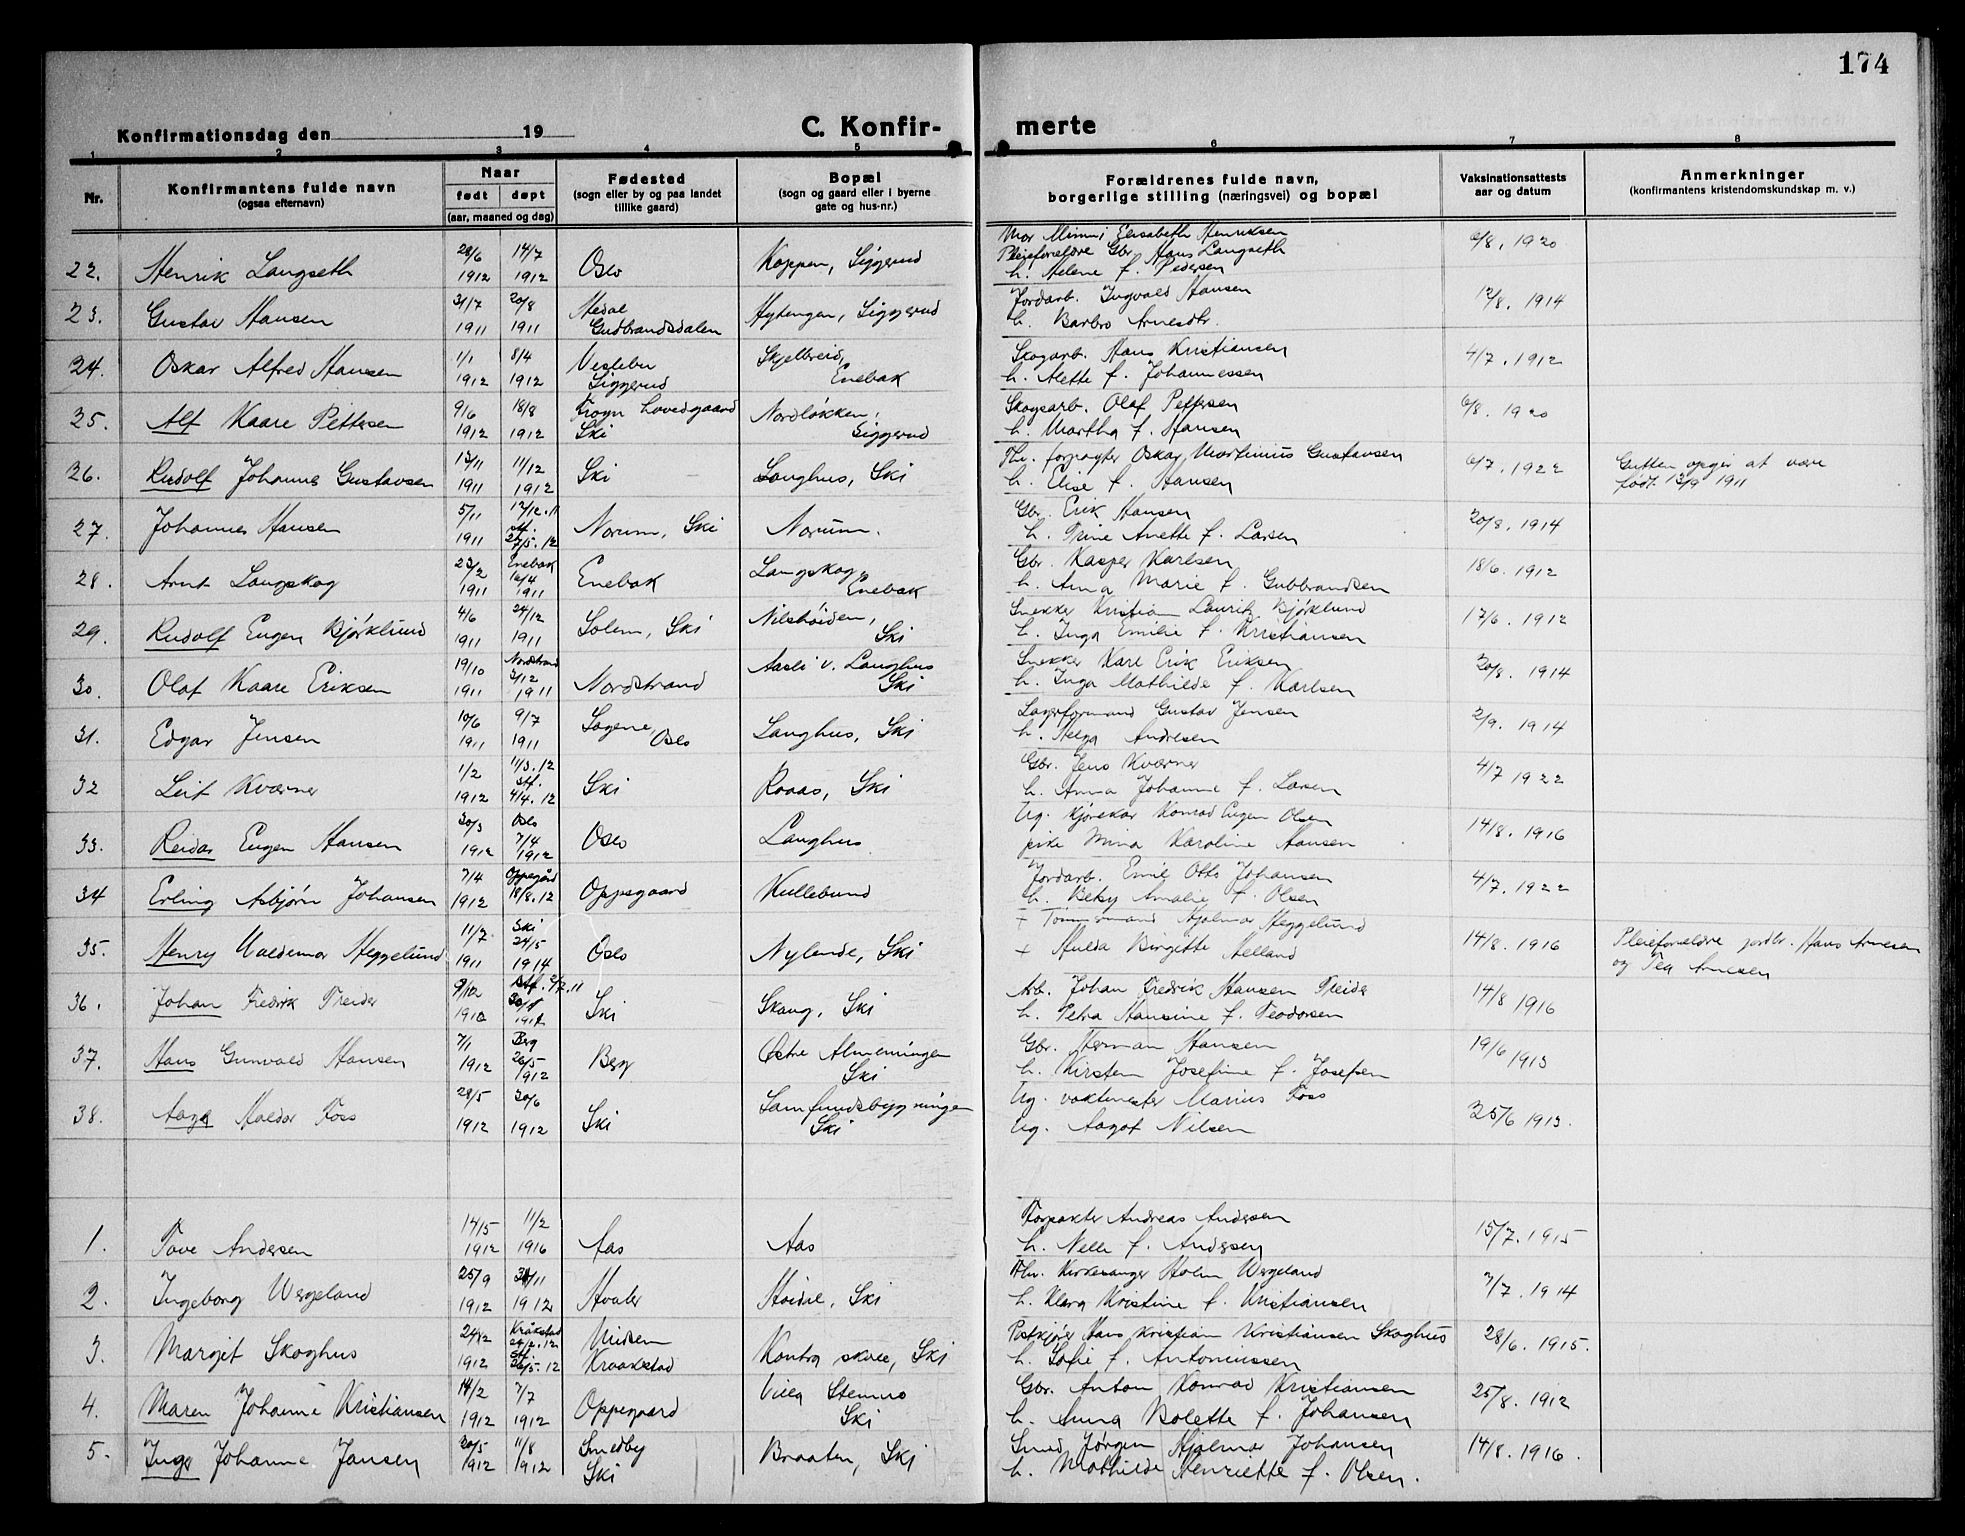 174
Konfirmationsdag den 19
C. Konfir-
merte
1 2 3 4 5 6 7 8
Nr.
Konfirmantens fulde navn
(ogsaa efternavn)
Naar
født døpt
(aar, maaned og dag)
Fødested
(sogn eller by og paa landet
tillike gaard)
Bopæl
(sogn og gaard eller i byerne
gate og hus-nr.)
Forældrenes fulde navn,
borgerlige stilling (næringsvei) og bopæl
Vaksinationsattests
aar og datum
Anmerkninger
(konfirmantens kristendomskundskap m. v.)
Mor Minni Elisabeth Henriksen
22. Henrik Langseth 28/6 1912 14/7 1912 Oslo Koppen, Siggerud Pleieforeldre Gbr. Hans Langseth 6/8. 1920
h. Helene f. Pedersen
23. Gustav Hansen 31/7 1911 20/8 1911 Hedal Hytengen, Siggerud Jordarb. Ingvald Hansen 12/8. 1914
Gudbrandsdalen h. Barbro Arnesdtr.
24. Oskar Alfred Hansen 1/1 1912 8/4 1912 Vestebu Skjelbreid, Skogarb. Hans Kristiansen 4/7. 1912
Siggerud Enebak h. Alette f. Johannessen
25. Alf Kaare Pettersen 9/6 1912 18/8 1912 Frogn Hovedgaard Nordløkken, Skogsarb. Olaf Pettersen 6/8. 1920
Ski Siggerud h. Martha f. Hansen
26. Rudolf Johannes Gustavsen 13/11 1911 11/12 1912 Ski Langhus, Ski Fhv. forpagter Oskar Martinius Gustavsen 6/7. 1922 Gutten opgir at være
h. Elise f. Hansen født 13/9 1911
27. Johannes Hansen 5/11 1911 17/12.11 st. 27/5.12 Norum, Ski Norum. Gbr. Erik Hansen 20/8. 1914
h. Trine Anette f. Larsen
28. Arnt Langskog 23/2 1911 Enebak 16/4 1911 Enebak Langskog, Gbr. Kasper Karlsen 18/6. 1912
Enebak h. Anna Marie f. Gubbrandsen
29. Rudolf Eugen Bjørklund 4/6 1911 24/12 1911 Solem, Ski Nilshøiden, Snekker Kristian Laurits Bjørklund 17/6. 1912
Ski h. Inga Emilie f. Kristiansen
30. Olaf Kaare Eriksen 19/10 1911 Nordstrand 3/12 1911 Nordstrand Aasli v. Langhus Snekker Kare Erik Eriksen 20/8. 1914
Ski h. Inga Mathilde f. Karlsen
31. Edgar Jensen 10/6 1911 9/7 1911 Sagene, Langhus, Ski Lagerformand Gustav Jensen 2/9. 1914
Oslo h. Helga Andresen
32 Leif Kværner 1/2 1912 11/3.12 st. 4/4.12 Ski Roaas, Ski Gbr. Jens Kværner 4/7 1922
h. Anna Johanne f. Larsen
33. Reidar Eugen Hansen 30/3 1912 Oslo 7/4 1912 Oslo Langhus Ug. kjørekar Konrad Eugen Olsen 14/8. 1916
pike Mina Karoline Hansen
34 Erling Asbjørn Johansen 7/4 1912 Oppegård 18/8.12 Oppegaard Kullebund Jordarb. Emil Otto Johansen 4/7. 1922
h. Betsy Amalie f. Olsen
35. Henry Valdemar Heggelund 11/7 1911 Ski 24/5 1914 Oslo Nylende, Ski + Tømmermand Hjalmar Heggelund 14/8. 1916 Pleieforældre jordbr. Hans Arnesen
+ Hulda Birgitte Helland og Tea Arnesen
36. Johan Fredrik Treider Ski Skaug, Ski Arb. Johan Fredrik Hansen Treider 14/8 1916
h. Petra Hansine f. Teodorsen
37. Hans Gunvald Hansen 7/1 1912 Berg 26/5 1912 Berg Østre Almenningen Gbr. Herman Hansen 19/6 1913
Ski h. Kirsten Josefine f. Josefsen
38. Aage Haldor Foss 28/5 1912 30/6 1912 Ski Samfundsbygningen Ug. vaktmester Marius Foss 25/6 1913.
Ski Ug. Aagot Nilsen
1. Tove Andersen 14/5 1912 11/2 1916 Aas Aas Forpakter Andreas Andersen 15/7. 1915
h. Nelle f. Andersen
2. Ingeborg Wergeland 25/9 1912 1912 Hvaler Høidal, Ski Fhv. kirkesanger Holm Wergeland 7/7. 1914
h. Klara Kristine f. Kristiansen
3. Margit Skoghus 24/2 1912 Kråkstad st. 26/5.12 Kraakstad Kontra skole, Ski Postkjører Hans Kristian Kristiansen Skoghus 28/6. 1915.
h. Sofie f. Antoniussen
4. Maren Johanne Kristiansen 14/2 1912 7/7 1912 Oppegaard Villa Stenmo Gbr. Anton Konrad Kristiansen 25/8. 1912
Ski h. Anna Bolette f. Johansen
5. Inga Johanne Jansen 30/5 1912 11/8 1912 Smedby Braaten, Ski Smed Jørgen Hjalmar Johansen 14/8. 1916.
Ski h. Mathilde Henriette f. Olsen.